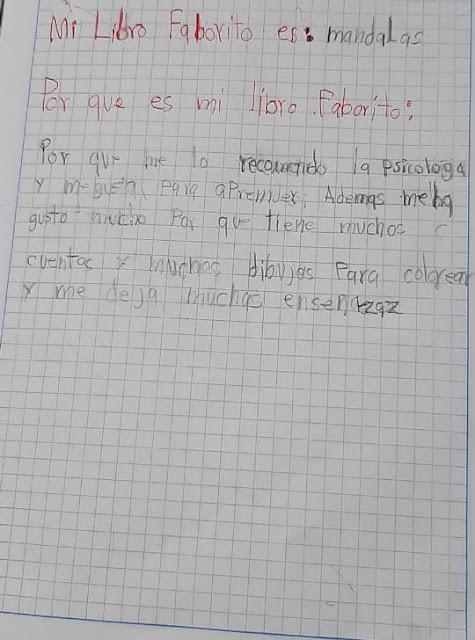 Mi Libro Faborito es: mandalas
Por que es mi libro Faborito:
Por que me lo recomendo la psicologa
y me gusta para apremder, Ademas me ha
gusto mucho Por que tiene muchos c
cuentos y muchos dibujos Para colorear
y me deja muchas enseñazaz